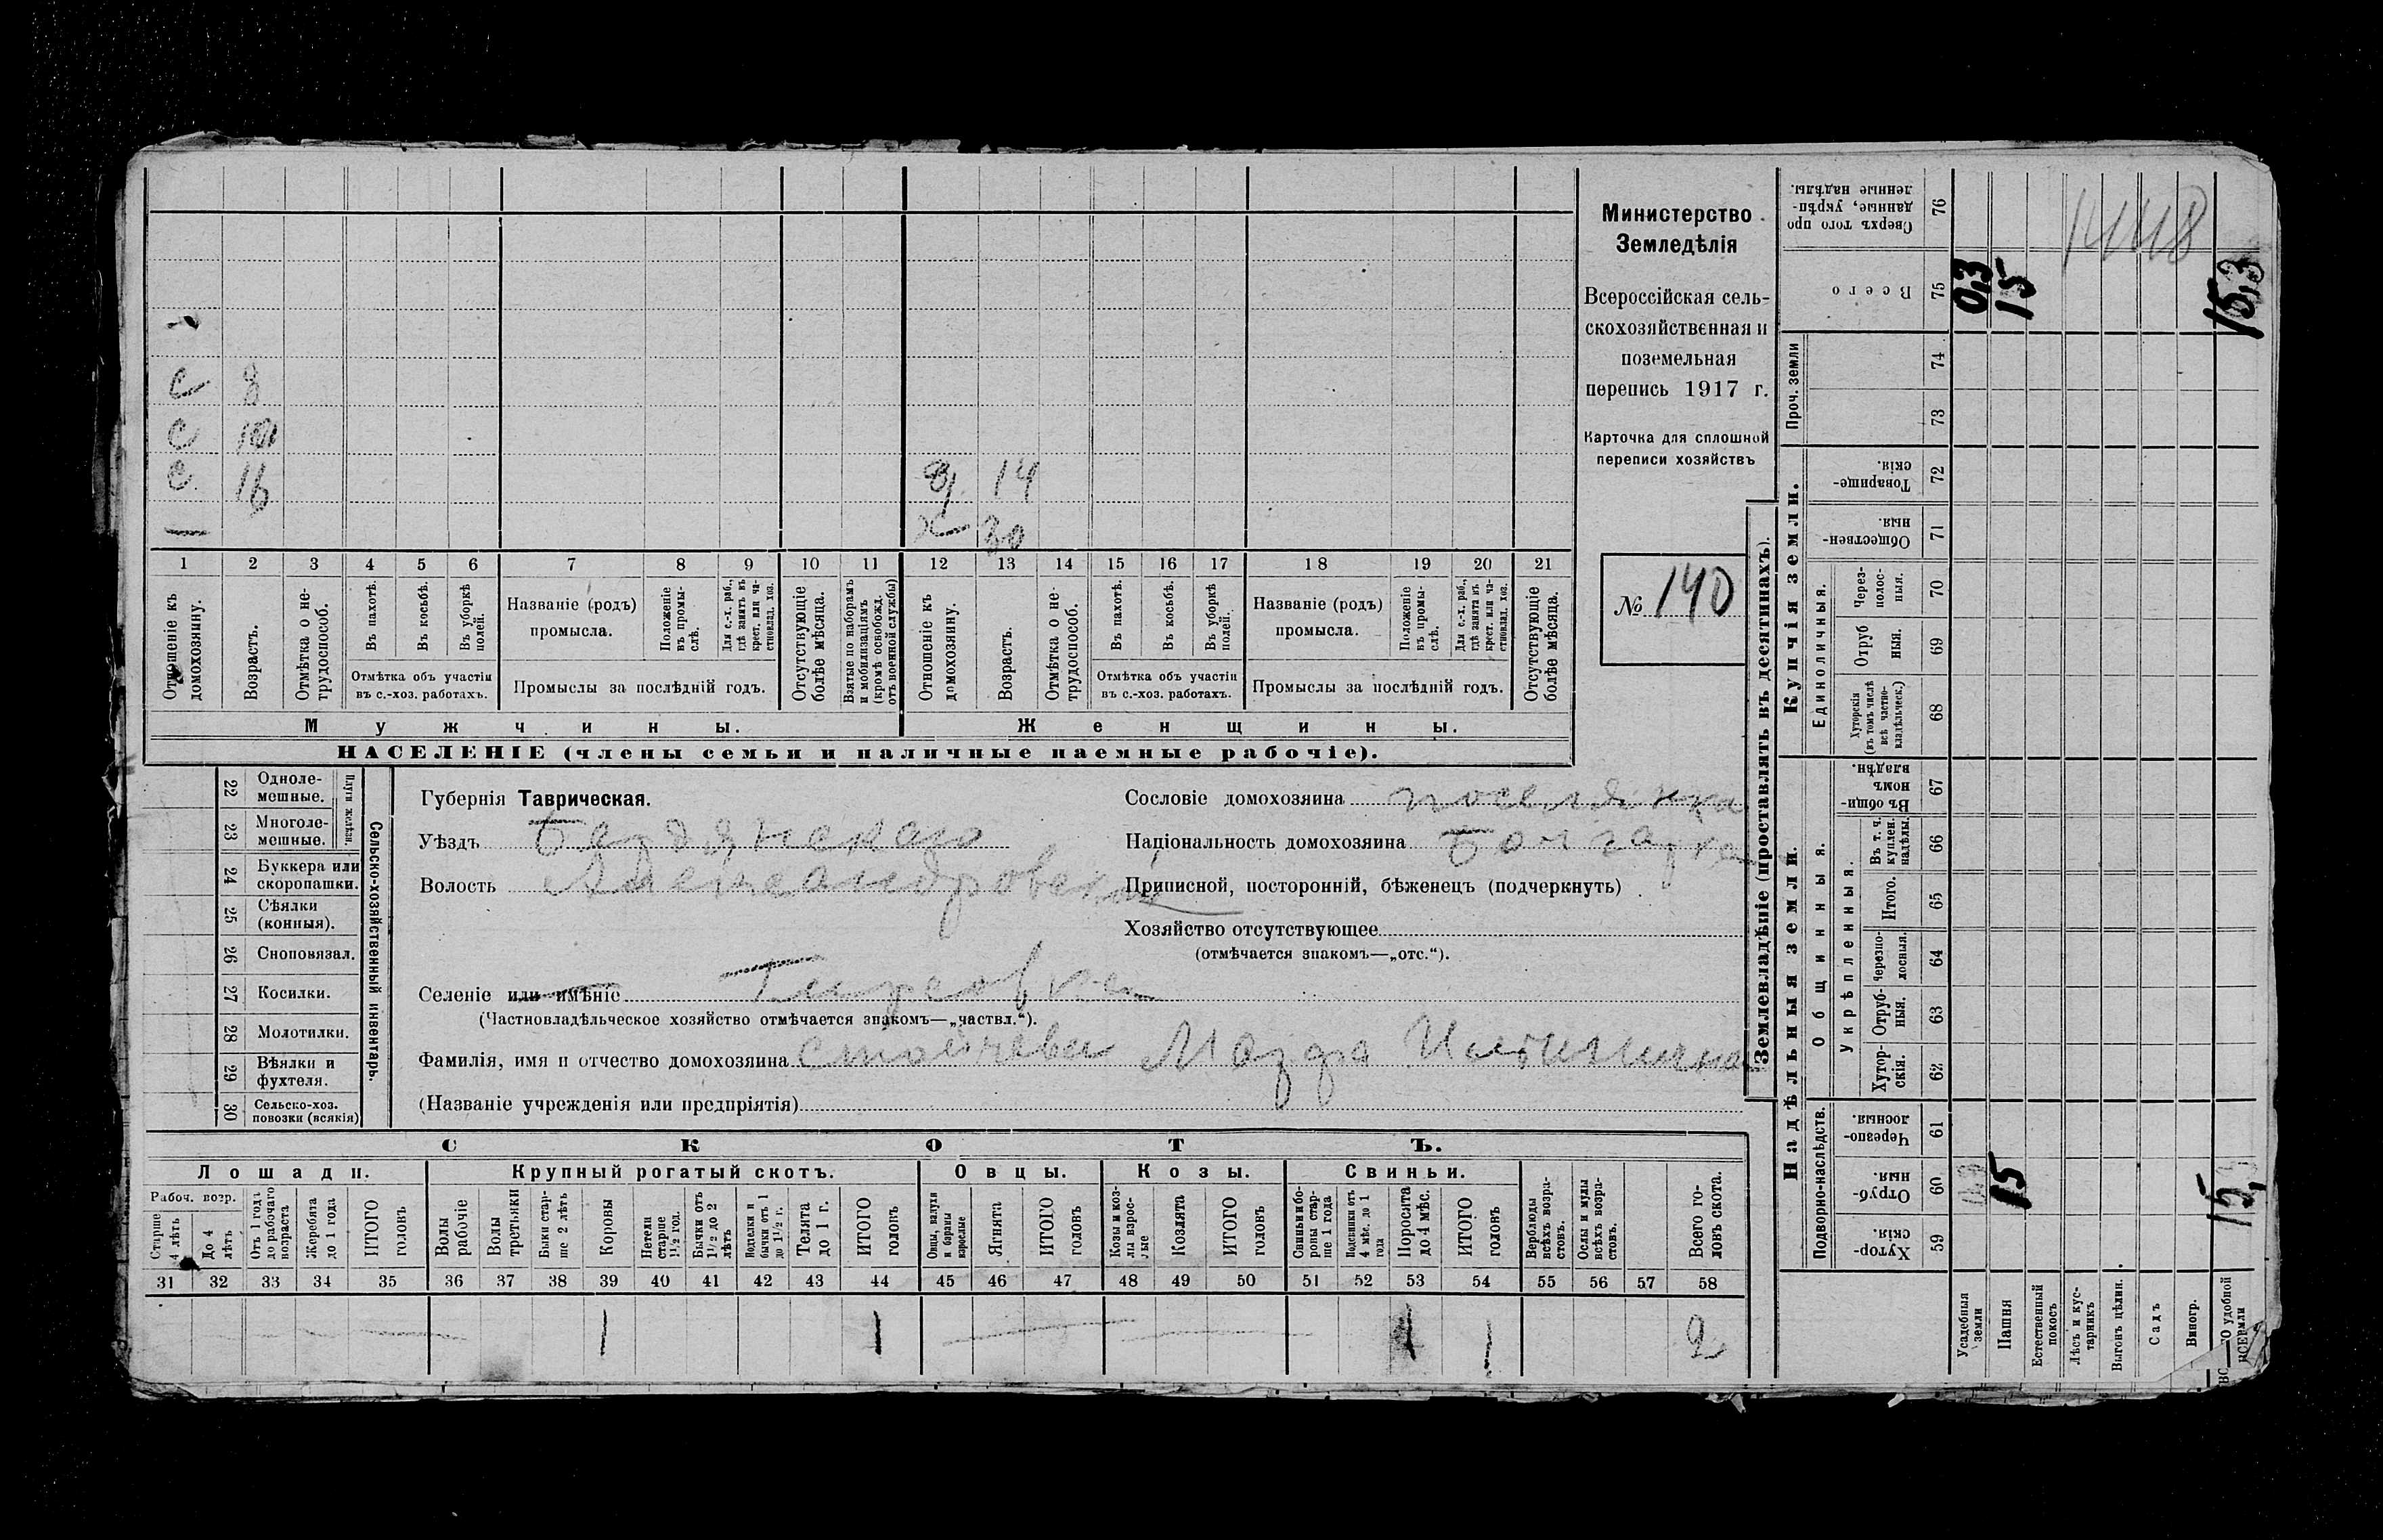 с 8
с
с 16 д 14
— х 30
1 2 3 4 5 6 7 8 9 10 11 12 13 14 15 16 17 18 19 20 21
Отношеніе къ домохозяину.
Возрастъ.
Отмѣтка о не-трудоспособ.
Въ пахотѣ.
Въ косьбѣ.
Въ уборкѣ полей.
Отмѣтка объ участіи
въ с.-хоз. работахъ.
Названіе (родъ)
промысла.
Положеніе въ промы-слѣ.
Для с.-х. раб., гдѣ занятъ въ крест. или ча-стновлад. хоз.
Промыслы за послѣдній годъ.
Отсутствующіе болѣе мѣсяца.
Взятые по наборамъ и мобилизаціямъ (кромѣ освобожд. отъ военной службы)
Отношеніе къ домохозяину.
Возрастъ.
Отмѣтка о не-трудоспособ.
Въ пахотѣ.
Въ косьбѣ.
Въ уборкѣ полей.
Отмѣтка объ участіи
въ с.-хоз. работахъ.
Названіе (родъ)
промысла.
Положеніе въ промы-слѣ.
Для с.-х. раб., гдѣ занята въ крест. или ча-стновлад. хоз.
Промыслы за послѣдній годъ.
Отсутствующіе болѣе мѣсяца.
Мужчины. Женщины.
НАСЕЛЕНІЕ (члены семьи и наличные наемные рабочіе).
Министерство
Земледѣлія
Всероссійская сель-
скохозяйственная и
поземельная
перепись 1917 г.
Карточка для сплошной
переписи хозяйствъ
№ 140
22 Одноле-мешные.
23 Многоле-мешные.
Плуги желѣзн.
24 Буккера или скоропашки.
25 Сѣялки (конныя).
26 Сноповязал.
27 Косилки.
28 Молотилки.
29 Вѣялки и фухтеля.
30 Сельско-хоз. повозки (всякія)
Сельско-хозяйственный инвентарь.
Губернія Таврическая.
Уѣздъ Бердянскаго
Волость Александровской
Селеніе или имѣніе
(Частновладѣльческое хозяйство отмѣчается знакомъ—„частвл.“).
Фамилія, имя и отчество домохозяина Стойчева
(Названіе учрежденія или предпріятія)
Сословіе домохозяина поселянка
Національность домохозяина Болгарка
Приписной, посторонній, бѣженецъ (подчеркнуть)
Хозяйство отсутствующее
(отмѣчается знакомъ—„отс.“).
СКОТЪ.
Лошади. Крупный рогатый скотъ. Овцы. Козы. Свиньи.
Рабоч. возр.
Старше 4 лѣтъ
До 4 лѣтъ
Отъ 1 года до рабочаго возраста
Жеребята до 1 года
ИТОГО головъ
Волы рабочіе
Волы третьяки
Быки стар-ше 2 лѣтъ
Коровы
Нетели старше 1½ год.
Бычки отъ 1½ до 2 лѣтъ
Подтелки и бычки отъ 1 до 1½ г.
Телята до 1 г.
ИТОГО головъ
Овцы, валухи и бараны взрослые
Ягнята
ИТОГО головъ
Козы и коз-лы взрос-лые
Козлята
ИТОГО головъ
Свиньи и бо-ровы стар-ше 1 года
Подсвинки отъ 4 мѣс. до 1 года
Поросята до 4 мѣс.
ИТОГО головъ
Верблюды всѣхъ возра-стовъ.
Ослы и мулы всѣхъ возра-стовъ.
Всего го-ловъ скота.
31 32 33 34 35 36 37 38 39 40 41 42 43 44 45 46 47 48 49 50 51 52 53 54 55 56 57 58
1 1 1 1 2
Землевладѣніе (проставлять въ десятинахъ).
Надѣльныя земли. Купчія земли.
Проч. земли
Подворно-наслѣдств.
Общинныя.
Укрѣпленныя.
Единоличныя.
Сверхъ того про-данные, укрѣп-ленные надѣлы. 76
Всего 75 0,3 15 15,3
1448
74
73
Товарище-скія. 72
Обществен-ныя. 71
Через-полос-ныя. 70
Отруб-ныя. 69
Хуторскія (въ томъ числѣ всѣ частно-владѣльческ.) 68
Въ общин-номъ владѣн. 67
Въ т. ч. куплен. надѣлы. 66
Итого. 65
Черезпо-лосныя. 64
Отруб-ныя. 63
Хутор-скія. 62
Черезпо-лосныя. 61
Отруб-ныя. 60 0,3 15
Хутор-скія. 59
Усадебныя земли
Пашня
Естественный покосъ
Лѣсъ и кус-тарникъ
Выгонъ цѣлин.
Садъ
Виногр.